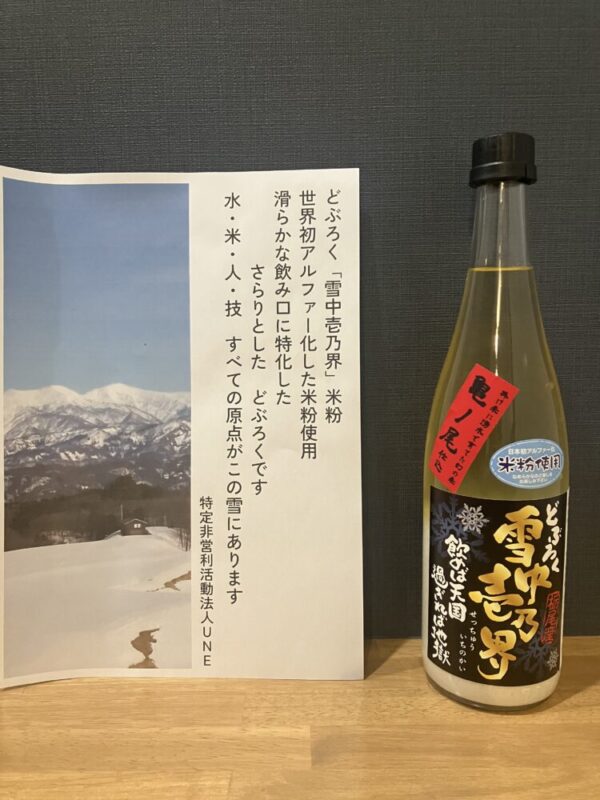 どぶろく「雪中壱乃界」米粉
世界初アルファー化した米粉使用
滑らかな飲み口に特化した
さらりとした　どぶろくです
水・米・人・技　すべての原点がこの雪にあります
特定非営利活動法人ＵＮＥ
亀ノ尾仕込
日本初アルファー化
米粉使用
どぶろく
雪中乃壱界
栃尾産
せっちゅう
いちのかい
飲めば天国
過ぎれば地獄